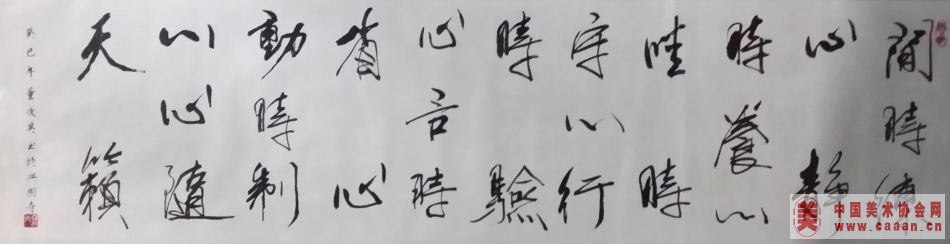 閒時煉
心靜
時養心
坐時
守心行
時驗
心言時
省心
動時制
心心隨
天籟
癸巳年董英书於興國寺
中国美术协会网
www.caaan.cn